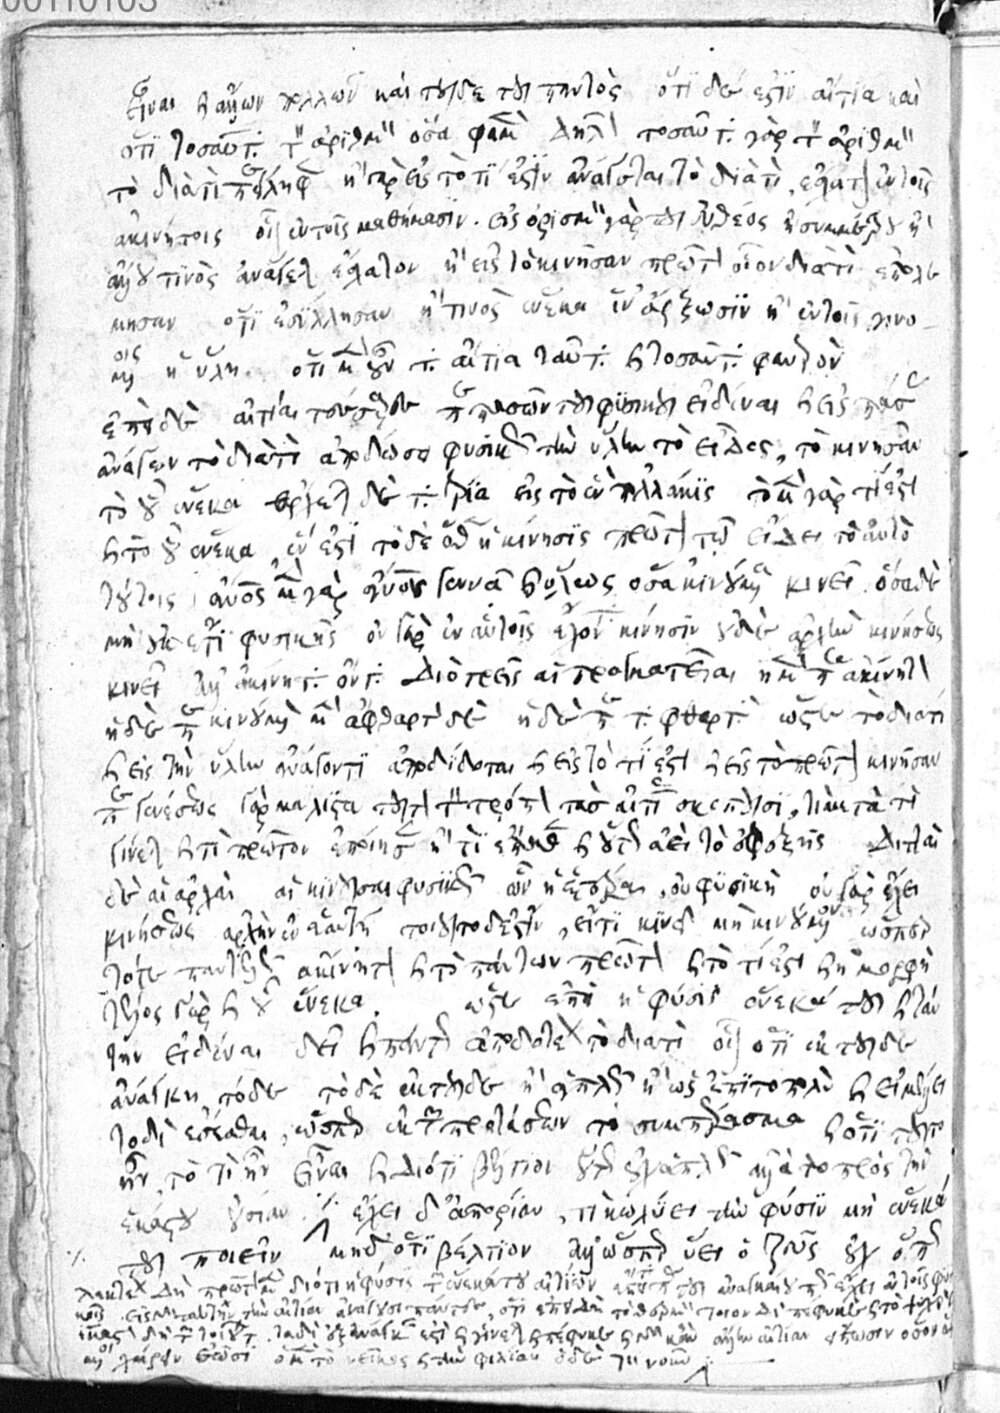 00110103
εἶναι καὶ ἄλλων πολλῶν καὶ τοῦδε τοῦ παντὸς ὅτι δὲ ἐστὶν αἴτια καὶ
ὅτι τοσαῦτα τὸν ἀριθμὸν ὅσα φαμὲν δῆλον τοσαῦτα γὰρ τὸν ἀριθμὸν
τὸ διὰτὶ περιείληφε ἢ γὰρ εἰς τὸ τί ἐστιν ἀνάγεται τὸ διὰτὶ, ἔσχατον ἐν τοῖς
ἀκινήτοις οἷον ἐν τοῖς μαθήμασιν. εἰς ὁρισμὸν γὰρ τοῦ εὐθέος ἢ συμμέτρου ἢ
ἄλλου τινὸς ἀνάγεται ἔσχατον ἢ εἰς τὸ κινῆσαν πρῶτον οἷον διατὶ ἐπολε
μησαν ὅτι ἐσύλησαν ἢ τίνος ἕνεκα ἵν' ἄρξωσιν ἢ ἐν τοῖς γινο
μένοις ἡ ὕλη. ὅτι μὲν οὖν τὰ αἴτια ταῦτα καὶ τοσαῦτα φανερὸν
ἐπεὶ δὲ αἰτίαι τέσσαρες περὶ πασῶν τοῦ φυσικοῦ εἰδέναι καὶ εἰς πάσας
ἀνάγων τὸ διατὶ ἀποδώσει φυσικῶς τὴν ὕλην τὸ εἶδος, τὸ κινῆσαν
τὸ οὗ ἕνεκα ἔρχεται δὲ τὰ τρία εἰς τὸ ἓν πολλάκις τὸ μὲν γὰρ τί ἐστι
καὶ τὸ οὗ ἕνεκα ἕν ἐστι τὸ δὲ ὅθεν ἡ κίνησις πρῶτον τῷ εἴδει τὸ αὐτὸ
τούτοις ἄνθρωπος μὲν γὰρ ἄνθρωπον γεννᾷ καὶ ὅλως ὅσα κινούμενα κινεῖ ὅσα δὲ
μὴ οὐκέτι φυσικῆς οὐ γὰρ ἐν αὑτοῖς ἔχοντα κίνησιν οὐδὲ ἀρχὴν κινήσεως
κινεῖ ἀλλ' ἀκίνητα ὄντα. Διὸ τρεῖς αἱ πραγματεῖαι ἡ μὲν περὶ ἀκίνητον
ἡ δὲ περὶ κινούμενα μὲν ἄφθαρτα δὲ ἡ δὲ περὶ τὰ φθαρτὰ ὥστε τὸ διατί
καὶ εἰς τὴν ὕλην ἀνάγοντι ἀποδίδοται καὶ εἰς τὸ τί ἐστι καὶ εἰς τὸ πρῶτον κινῆσαν
περὶ γενέσεως γὰρ μάλιστα τοῦτον τὸν τρόπον τὰς αἰτίας σκοποῦσι, τί μετὰ τὶ
γίνεται καὶ τί πρῶτον ἐποίησεν ἢ τί ἔπαθεν καὶ οὕτως ἀεὶ τὸ ἐφεξῆς Διτταὶ
δὲ αἱ ἀρχαὶ αἱ κινοῦσαι φυσικῶς ὧν ἡ ἑτέρα, οὐ φυσική οὐ γὰρ ἔχει
κινήσεως ἀρχὴν ἐν ἑαυτῇ τοιοῦτο δ' ἐστὶν, εἴ τι κινεῖ μὴ κινούμενον ὥσπερ
τό τε παντελῶς ἀκίνητον καὶ τὸ πάντων πρῶτον καὶ τὸ τί ἐστι καὶ ἡ μορφὴ
τέλος γὰρ καὶ οὗ ἕνεκα. ὥστε ἐπεὶ ἡ φύσις ἕνεκά του καὶ ταύ
την εἰδέναι δεῖ καὶ πάντως ἀποδοτέον τὸ διατί οἷον ὅτι ἐκ τοῦδε
ἀνάγκη τόδε τὸ δὲ ἐκ τοῦδε ἢ ἁπλῶς ἢ ὡς ἐπὶ τὸ πολὺ καὶ εἰ μέλλει
τοδὶ ἔσεσθαι, ὥσπερ ἐκ τῶν προτάσεων τὸ συμπέρασμα καὶ ὅτι τοῦτο
ἦν τὸ τί ἦν εἶναι καὶ διότι βέλτιον οὕτως οὐχ ἁπλῶς ἀλλὰ τὸ πρὸς τὴν
ἑκάστου οὐσίαν ἔχει δ' ἀπορίαν, τί κωλύει τὴν φύσιν μὴ ἕνεκά
του ποιεῖν μηδ' ὅτι βέλτιον ἀλλ' ὥσπερ ὕει ὁ Ζεὺς οὐχ ὅπως
λεκτέον δὴ πρῶτον μὲν διότι ἡ φύσις τῶν ἕνεκά του αἰτίων ἔπειτα περὶ τοῦ ἀναγκαίου πῶς ἔχει ἐν τοῖς φυσι
κοῖς. εἰς γὰρ ταύτην τὴν αἰτίαν ἀνάγουσι πάντες, ὅτι ἐπειδὴ τὸ θερμὸν τοιονδὶ πέφυκε καὶ τὸ ψυχρὸν
ἕκαστον δὴ τῶν τοιούτων ταδὶ ἐξ ἀνάγκης ἐστὶ καὶ γίνεται καὶ γὰρ κἂν ἄλλην αἰτίαν εἴπωσιν ὅσον ἁψά
μενοι χαίρειν ἐῶσι ὁ μὲν τὸ νεῖκος καὶ τὴν φιλίαν ὁ δὲ τὸν νοῦν